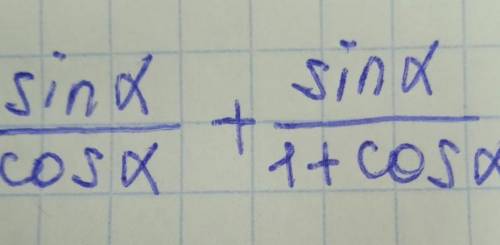 sinα/cosα + sinα/1+cosα